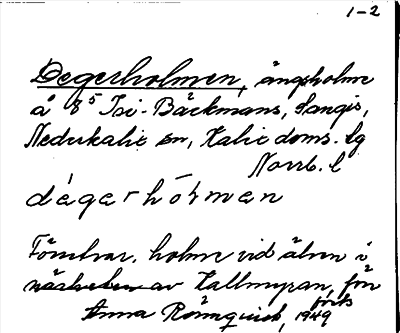 1-2
Degerholmen, ängsholme
å 8⁵ Isi-Bäckmans, Sangis,
Nederkalix sn, Kalix doms. lg
Norrb. l
dégerhólmen
holme vid älven i
närheten av Kallmyran, för
förts
Anna Rönnquist, 1949